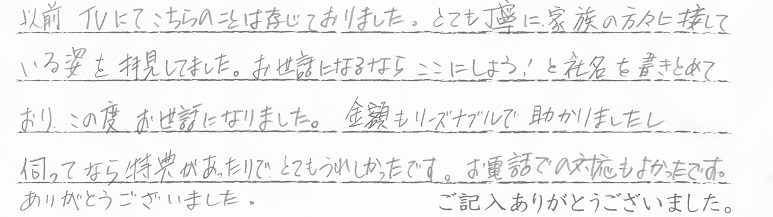 以前 TVにてこちらのことは存じておりました。とても丁寧に家族の方々に接して
いる姿を拝見してました。お世話になるなら ここにしよう!と社名を書きとめて
おり この度 お世話になりました。 金額もリーズナブルで 助かりましたし
伺ってなら特典があったりで とてもうれしかったです。お電話での対応もよかったです。
ありがとうございました。 ご記入ありがとうございました。